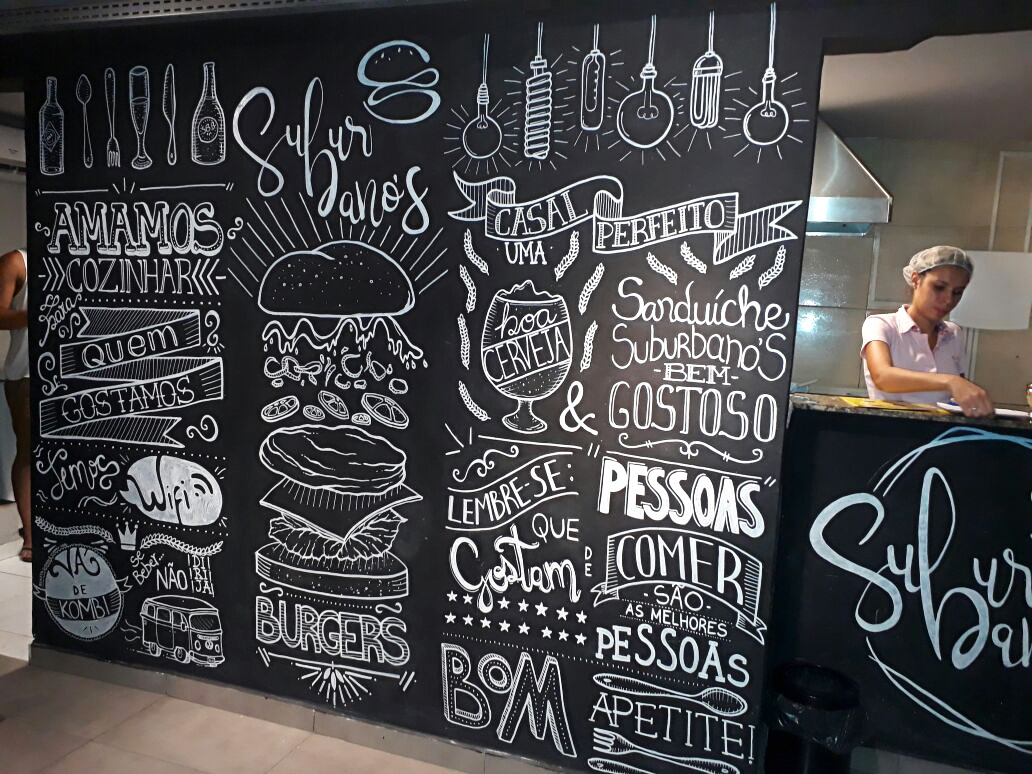 AMAMOS
COZINHAR
para
quem
GOSTAMOS
Temos
Wifi
VÁ
DE
KOMBI
Se
Beber
NÃO
DIRIJA
Subur
bano's
BURGERS
CASAL
PERFEITO
UMA
boa
CERVEJA
&
Sanduíche
Suburbano's
-BEM-
GOSTOSO
LEMBRE-SE:
"PESSOAS"
QUE
Gostam
DE
COMER
-SÃO-
AS MELHORES
PESSOAS
BOM
APETITE!
Subur
ban